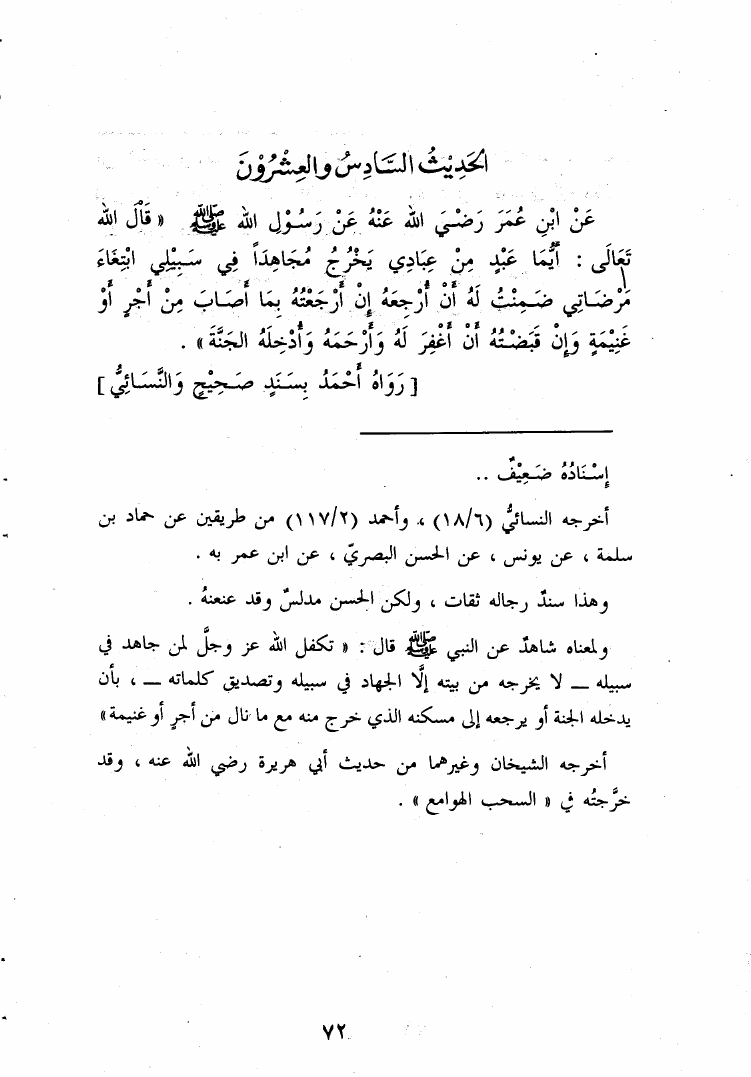 الحَدِيْثُ السَّادِسُ والعِشْرُوْنَ
عَنْ ابْنِ عُمَرَ رَضْيَ الله عَنْهُ عَنْ رَسُوْلِ الله ﷺ « قَالَ الله
تَعَالَى : أَيُّمَا عَبْدٍ مِنْ عِبَادِي يَخْرُجُ مُجَاهِدَاً فِي سَبِيْلِي ابْتِغَاءَ
مَرْضَاتِي ضَمِنْتُ لَهُ أَنْ أُرْجِعَهُ إِنْ أَرْجَعْتُهُ بِمَا أَصَابَ مِنْ أَجْرٍ أَوْ
غَنِيْمَةٍ وَإِنْ قَبَضْتُهُ أَنْ أَغْفِرَ لَهُ وَأَرْحَمَهُ وَأُدْخِلَهُ الجَنَّةَ » .
[ رَوَاهُ أَحْمَدُ بِسَنَدٍ صَحِيْحٍ وَالنَّسَائِيُّ ]
إِسْنَادُهُ ضَعِيْفٌ ..
أخرجه النسائيُّ (١٨/٦) ، وأحمد (١١٧/٢) من طريقين عن حماد بن
سلمة ، عن يونس ، عن الحسن البصريّ ، عن ابن عمر به .
وهذا سندٌ رجاله ثقات ، ولكن الحسن مدلسٌ وقد عنعنهُ .
ولمعناه شاهدٌ عن النبي ﷺ قال : « تكفل الله عز وجلَّ لمن جاهد في
سبيله ــ لا يخرجه من بيته إلَّا الجهاد في سبيله وتصديق كلماته ــ ، بأن
يدخله الجنة أو يرجعه إلى مسكنه الذي خرج منه مع ما نال من أجرٍ أو غنيمة »
أخرجه الشيخان وغيرهما من حديث أبي هريرة رضي الله عنه ، وقد
خرَّجتُه في « السحب الهوامع » .
٧٢